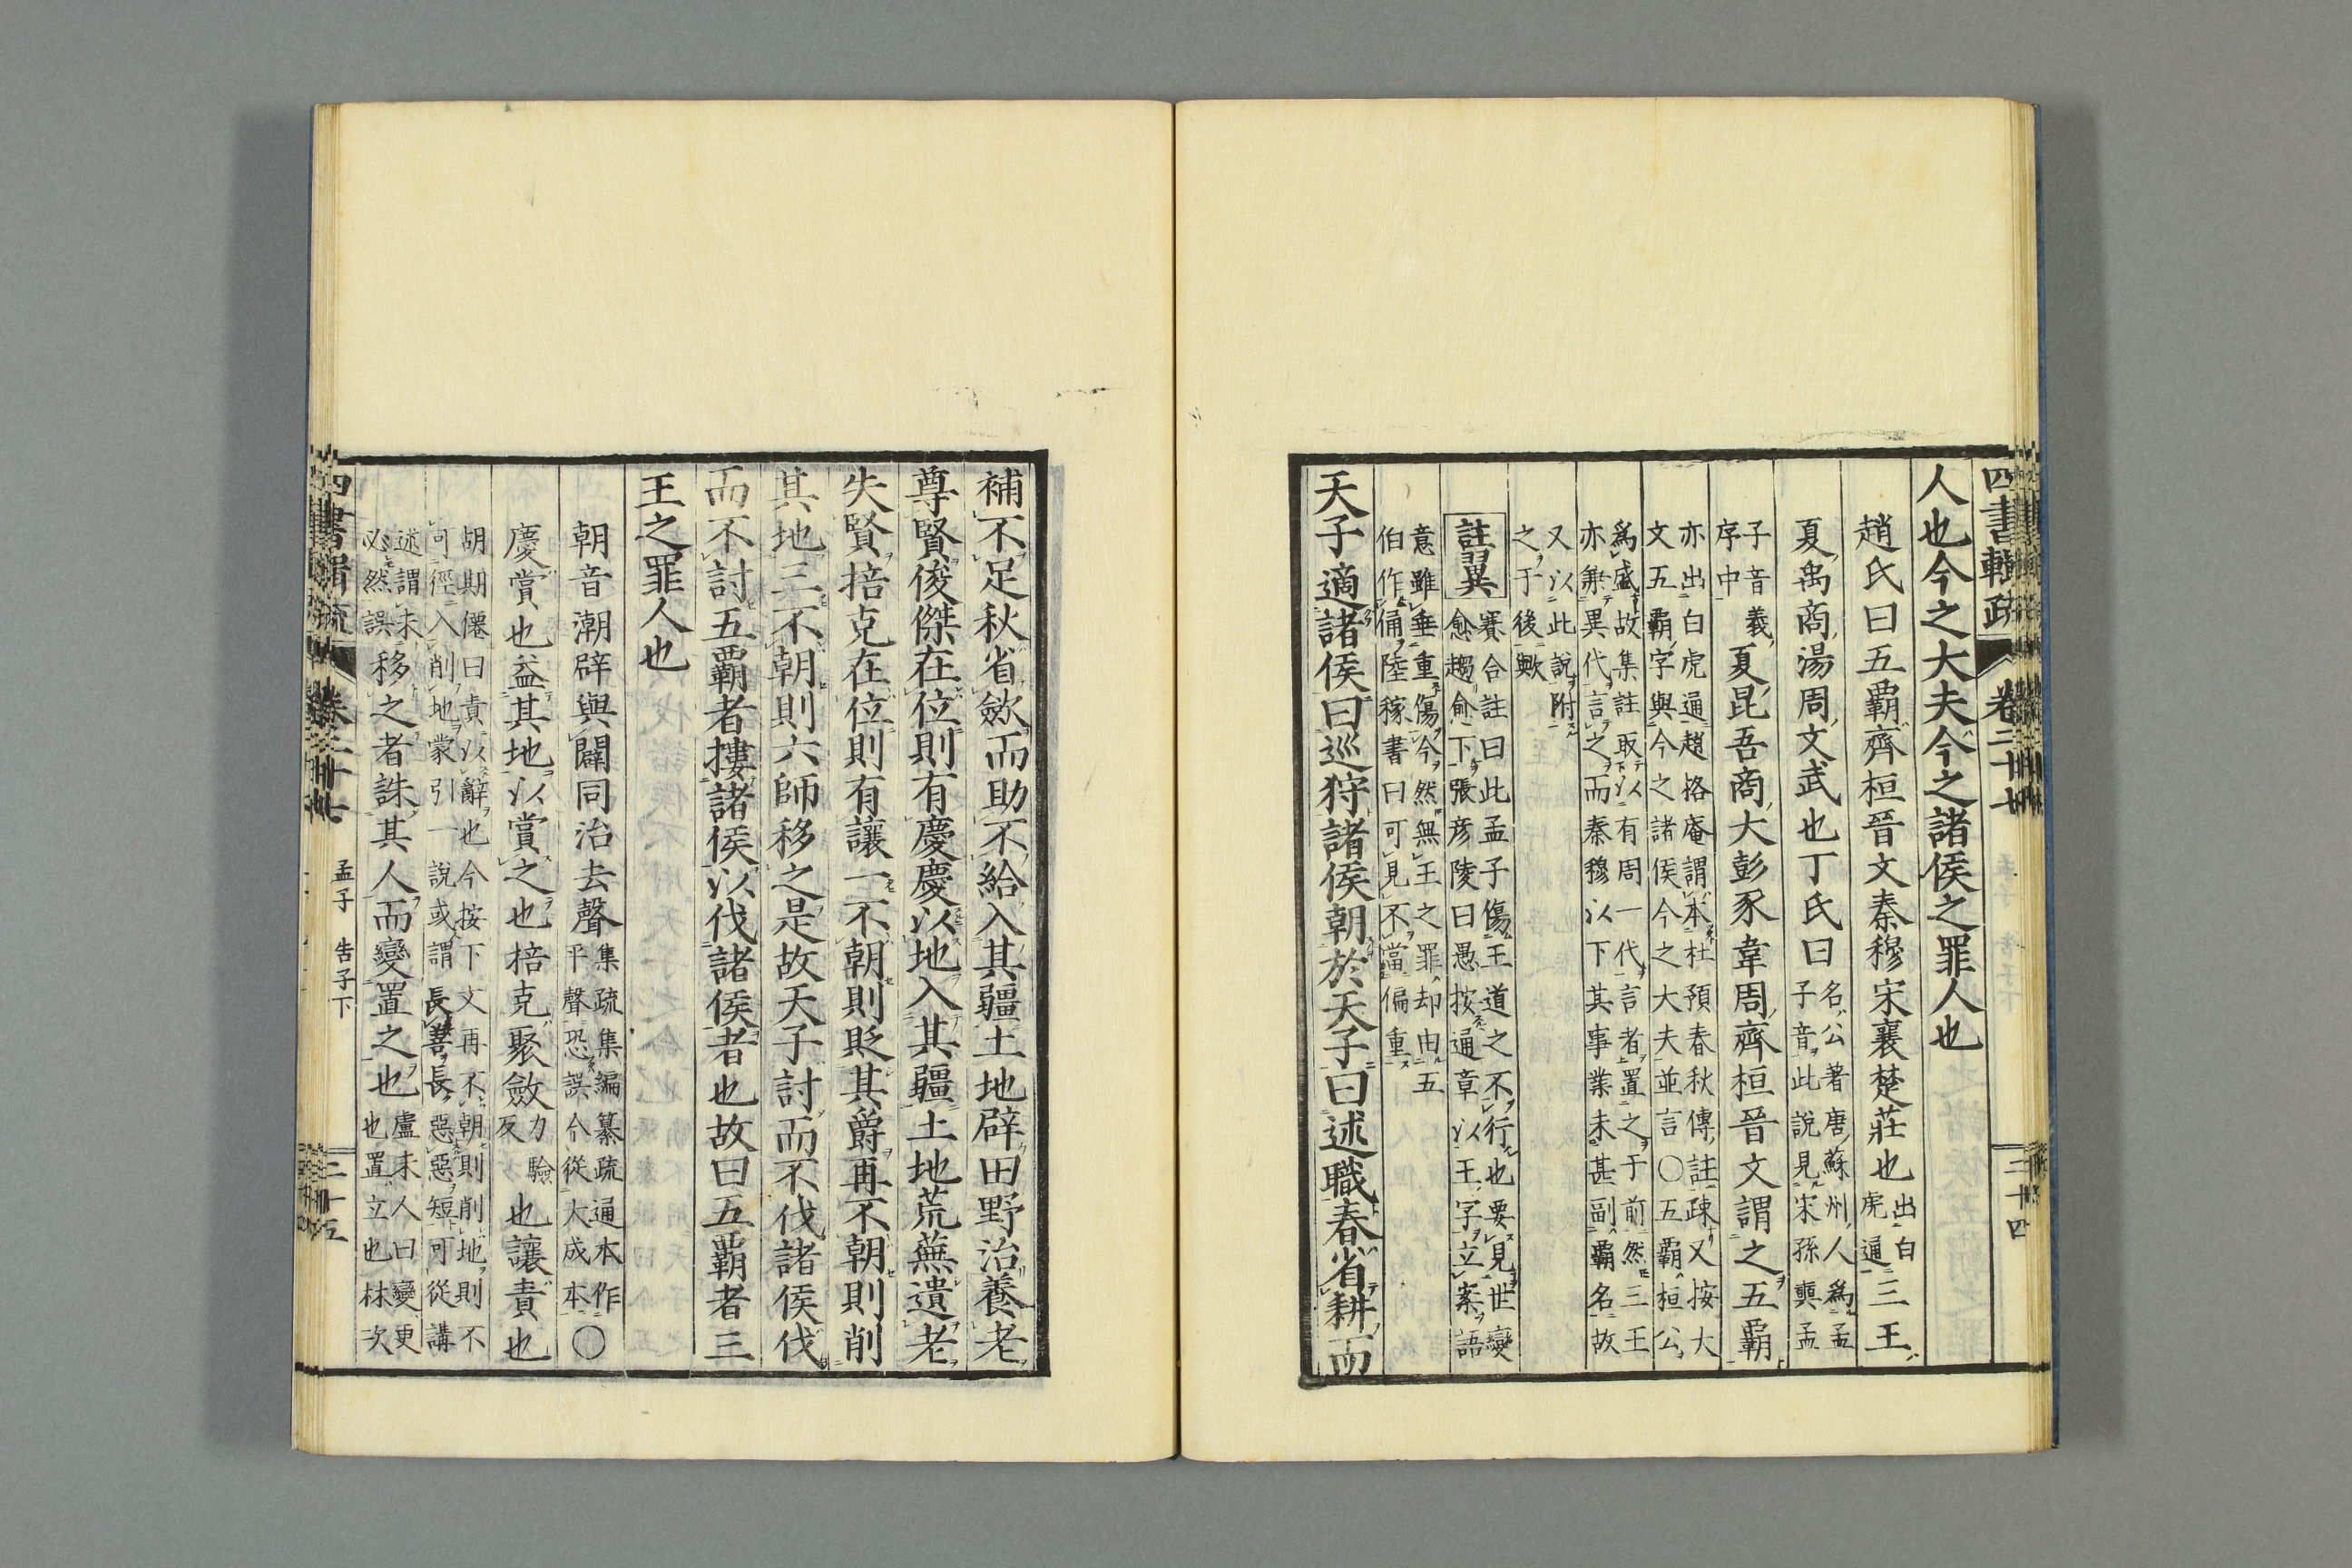 四書輯疏 卷二十七 二十四
人也今之大夫今之諸侯之罪人也
趙氏曰五霸齊桓晉文秦穆宋襄楚莊也出白虎通三王
夏禹商湯周文武也丁氏曰名公著唐蘇州人爲孟子音此說見宋孫奭孟
子音義序中夏昆吾商大彭豕韋周齊桓晉文謂之五霸
亦出白虎通趙格庵謂本杜預春秋傳註疎又按大
文五霸字與今之諸侯今之大夫並言〇五霸桓公
爲盛故集註取以有周一代言者置之于前然三王
亦兼異代言之而秦穆以下其事業未甚副霸名故
又以此說附
之于後歟
註異 賽合註曰此孟子傷王道之不行也要見世變
愈趨愈下張彦陵曰愚按通章以王字立案語
意雖垂重傷今然無王之罪却由五
伯作俑陸稼書曰可見不當偏重
天子適諸侯曰巡狩諸侯朝於天子曰述職春省耕而
補不足秋省斂而助不給入其疆土地辟田野治養老
尊賢俊傑在位則有慶慶以地入其疆土地荒蕪遺老
失賢掊克在位則有讓一不朝則貶其爵再不朝則削
其地三不朝則六師移之是故天子討而不伐諸侯伐
而不討五霸者摟諸侯以伐諸侯者也故曰五霸者三
王之罪人也
朝音潮辟與闢同治去聲集疏集編纂疏通本作平聲恐誤今從大成本〇
慶賞也益其地以賞之也掊克聚斂力驗反也讓責也
胡期僊曰責以辭也今按下文再不朝則削地則不
可徑入削地蒙引一說或謂長善長惡惡短可從講
述謂未必然誤移之者誅其人而變置之也盧未人曰變更也置立也林次
四書輯疏 卷二十七 孟子 告子下 二十五